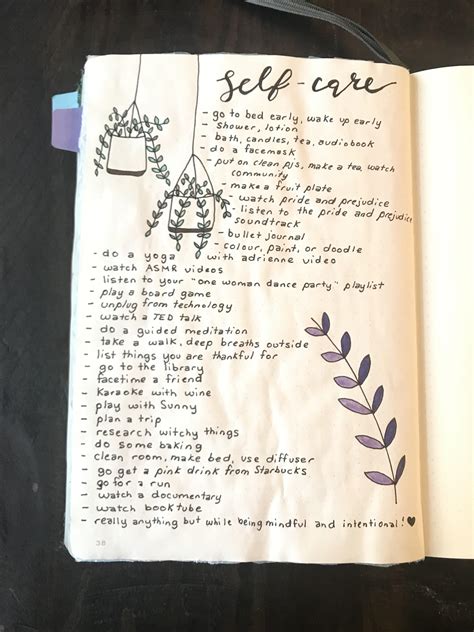 self-care
- go to bed early, wake up early
- shower, lotion
- bath, candles, tea, audiobook
- do a facemask
- put on clean PJs, make a tea, watch
community
- make a fruit plate
- watch pride and prejudice
- listen to the pride and prejudice
soundtrack
- bullet journal
- colour, paint, or doodle
- do a yoga with adrienne video
- watch ASMR videos
- listen to your "one woman dance party" playlist
- play a board game
- unplug from technology
- watch a TED talk
- do a guided meditation
- take a walk, deep breaths outside
- list things you are thankful for
- go to the library
- facetime a friend
- karaoke with wine
- play with Sunny
- plan a trip
- research witchy things
- do some baking
- clean room, make bed, use diffuser
- go get a pink drink from Starbucks
- go for a run
- watch a documentary
- watch booktube
- really anything but while being mindful and intentional! ♥
38